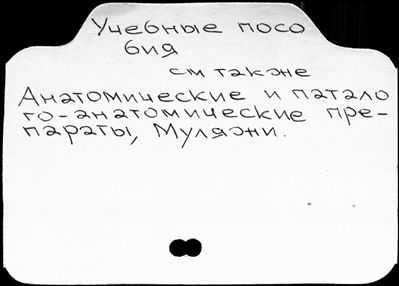 Учебные посо
бия
см также
Анатомические и патало
го-анатомические пре-
параты, Муляжи.